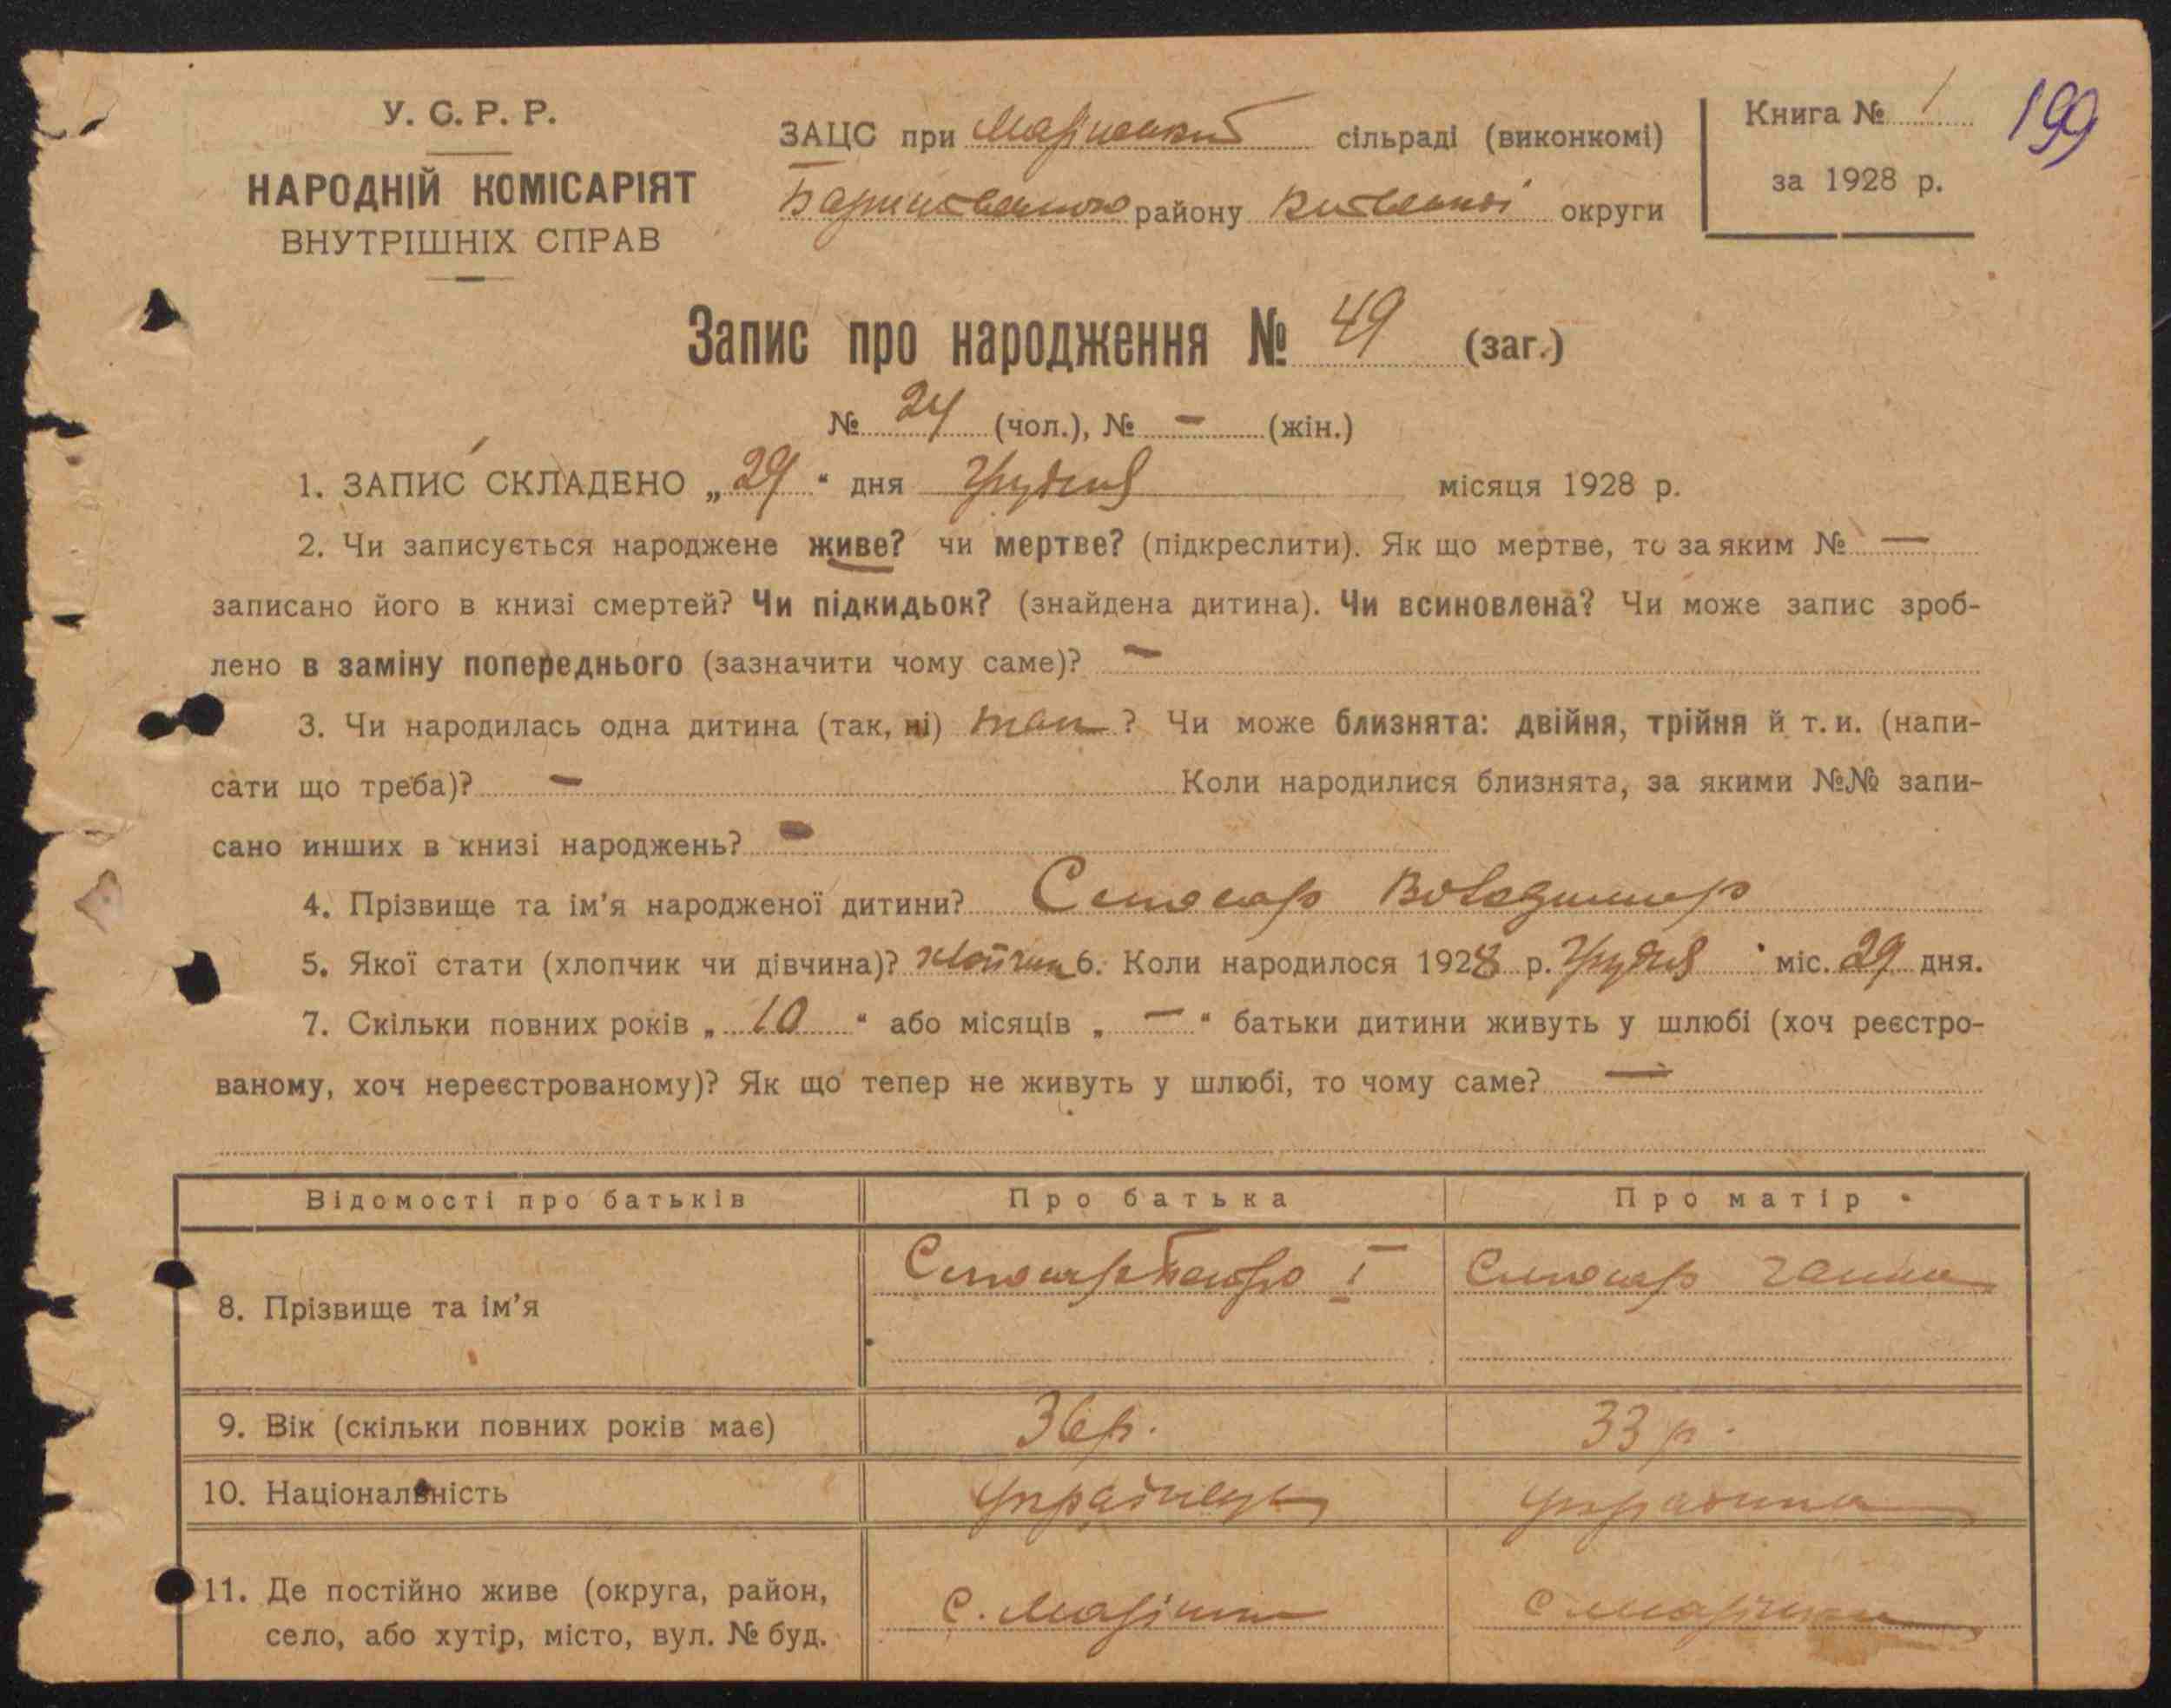 У. С. Р. Р.
НАРОДНІЙ КОМІСАРІЯТ
ВНУТРІШНІХ СПРАВ
ЗАЦС при сільраді (виконкомі)
району округи
Книга № 1
за 1928 р.
199
Запис про народження № 49 (заг.)
№ 24 (чол.), № — (жін.)
1. ЗАПИС СКЛАДЕНО „29“ дня Грудня місяця 1928 р.
2. Чи записується народжене живе? чи мертве? (підкреслити). Як що мертве, то за яким № —
записано його в книзі смертей? Чи підкидьок? (знайдена дитина). Чи всиновлена? Чи може запис зроб-
лено в заміну попереднього (зазначити чому саме)? —
3. Чи народилась одна дитина (так, ні) так? Чи може близнята: двійня, трійня й т. и. (напи-
сати що треба)? — Коли народилися близнята, за якими №№ запи-
сано инших в книзі народжень? —
4. Прізвище та ім’я народженої дитини? Володимир
5. Якої стати (хлопчик чи дівчина)? хлопчик 6. Коли народилося 1928 р. Грудня міс. 29 дня.
7. Скільки повних років „10“ або місяців „—“ батьки дитини живуть у шлюбі (хоч реєстро-
ваному, хоч нереєстрованому)? Як що тепер не живуть у шлюбі, то чому саме? —
Відомості про батьків Про батька Про матір
8. Прізвище та ім’я Петро I Ганна
9. Вік (скільки повних років має) 36 р. 33 р.
10. Національність Українець Українка
11. Де постійно живе (округа, район,
село, або хутір, місто, вул. № буд. с. с.